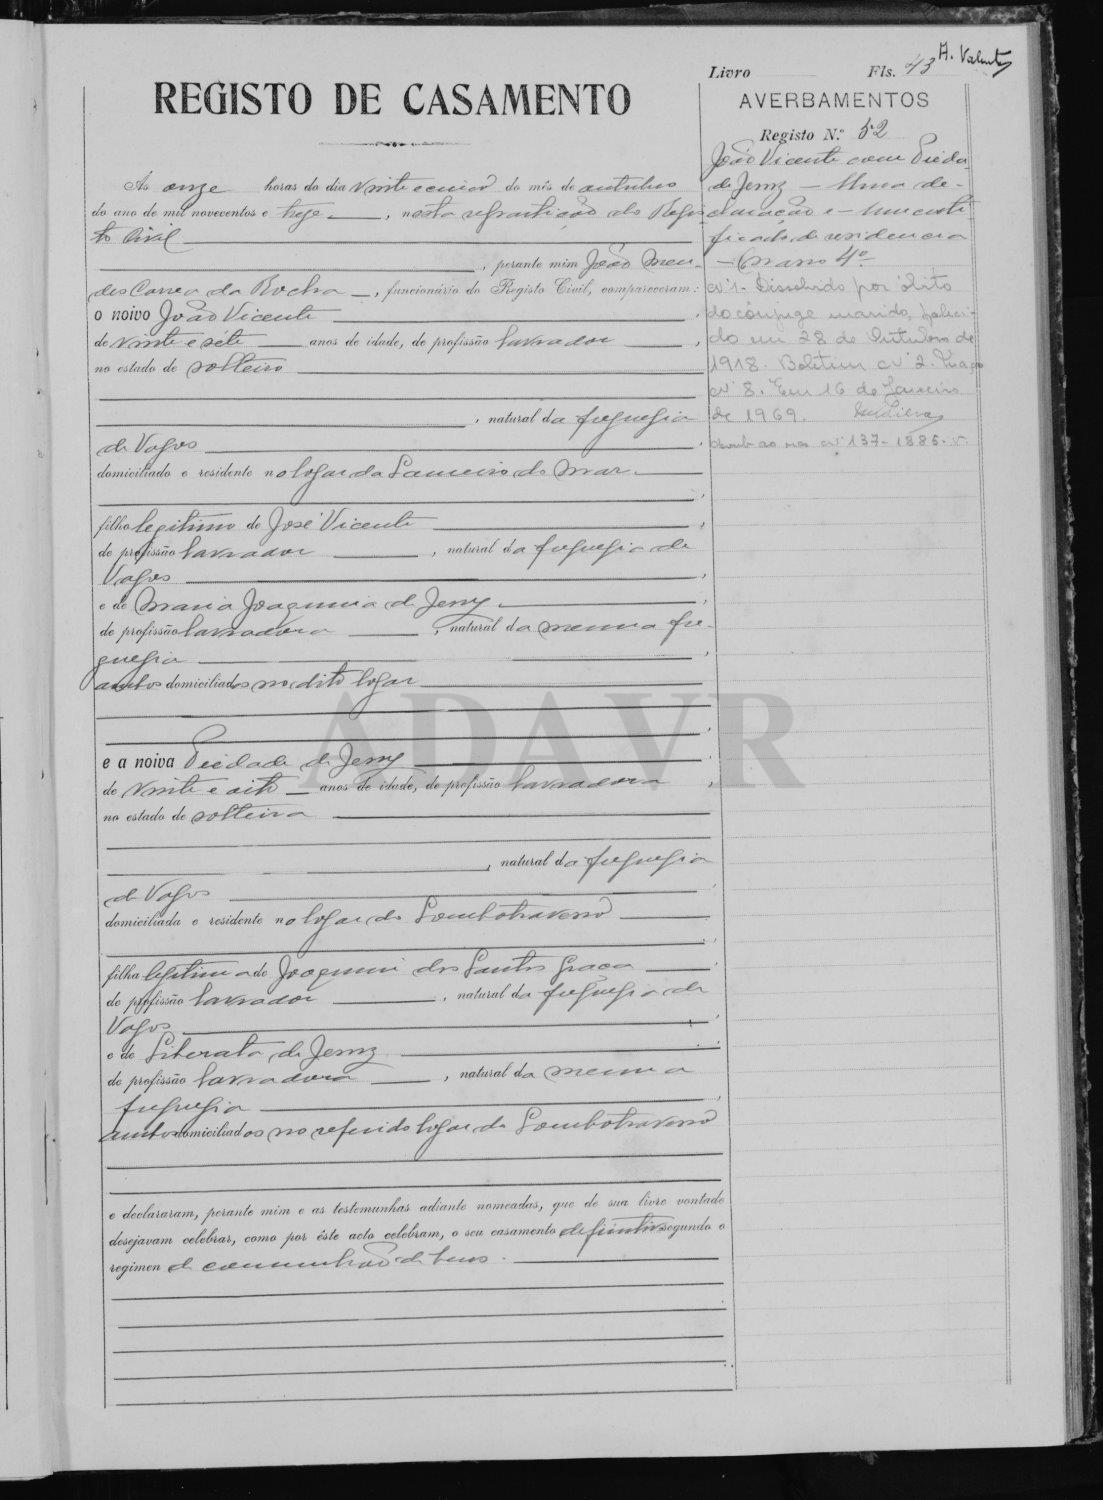 A. Valente
Livro Fls. 43
REGISTO DE CASAMENTO
AVERBAMENTOS
Registo N.º 52
João Vicente com Pieda-
de Jesuz — Uma de-
claração e — um certi-
ficado de residencia
— Maço 4º —
Nº 1 - Dissolvido por óbito
do cônjuge marido, faleci-
do em 28 de Outubro de
1918. Boletim Nº 2. Maço
Nº 8. Em 16 de Janeiro
de 1969.
nº 137-1885-V.
As onze horas do dia vinte e cinco do mês de outubro
do ano de mil novecentos e treze, nesta repartição do Regis-
to Civil
, perante mim João Men-
des Correa da Rocha, funcionário do Registo Civil, compareceram:
o noivo João Vicente
de vinte e sete anos de idade, de profissão lavrador,
no estado de solteiro
, natural da freguesia
de Vagos,
domiciliado e residente no logar da Gameiro do Mar
,
filho legitimo de José Vicente,
de profissão lavrador, natural da freguesia de
Vagos,
e de Maria Joaquina de Jesuz,
de profissão lavradora, natural da mesma fre-
guesia,
ambos domiciliados no dito logar
e a noiva Piedade de Jesuz
de vinte e oito anos de idade, de profissão lavradora,
no estado de solteira
, natural da freguesia
de Vagos,
domiciliada e residente no logar de Lombotraverso
,
filha legitima de Joaquim dos Santos Graça,
de profissão lavrador, natural da freguesia de
Vagos,
e de Liberata de Jesuz,
de profissão lavradora, natural da mesma
freguesia,
ambos domiciliados no referido logar de Lombotraverso
e declararam, perante mim e as testemunhas adiante nomeadas, que de sua livre vontade
desejavam celebrar, como por êste acto celebram, o seu casamento definitivo segundo o
regimen de communhão de bens.
ADAVR